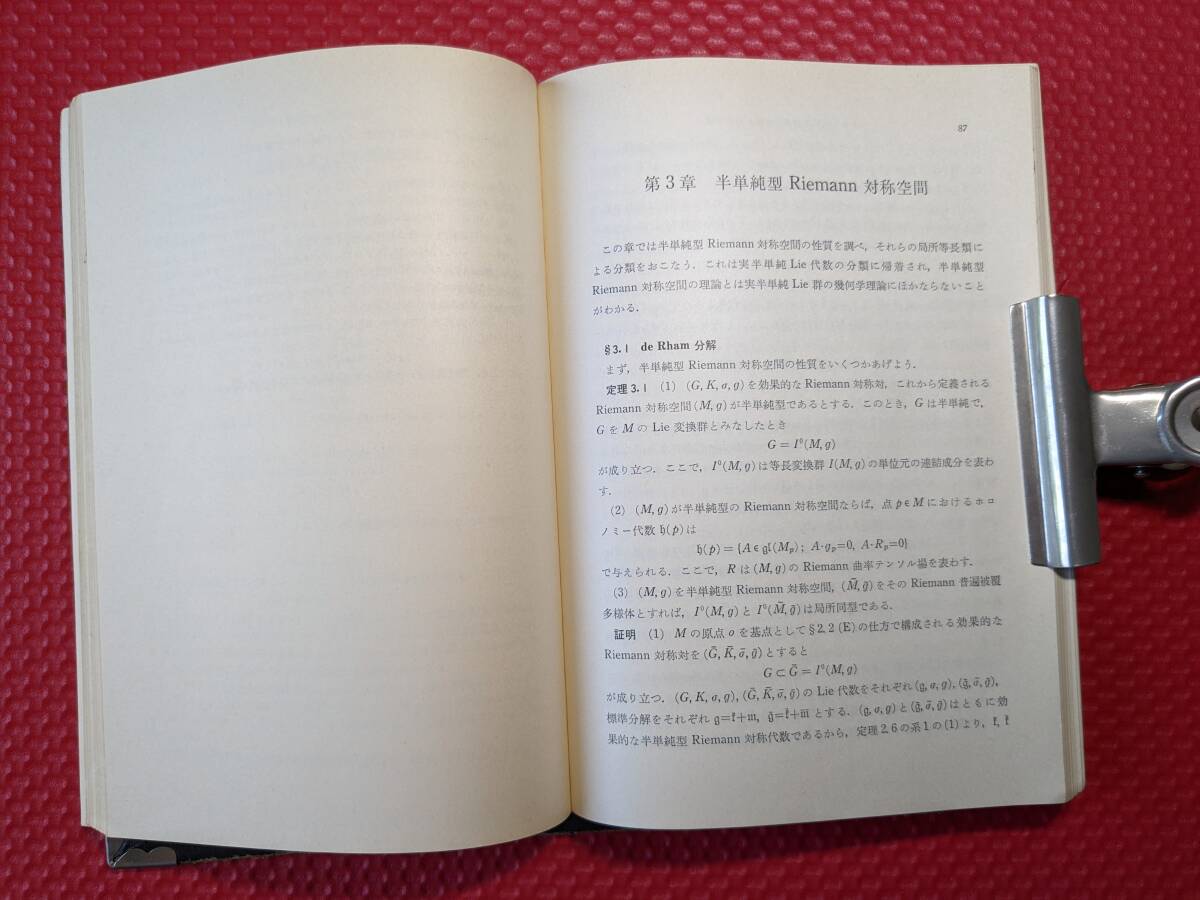 87
第3章 半単純型 Riemann 対称空間
この章では半単純型 Riemann 対称空間の性質を調べ,それらの局所等長類に
よる分類をおこなう.これは実半単純 Lie 代数の分類に帰着され,半単純型
Riemann 対称空間の理論とは実半単純 Lie 群の幾何学理論にほかならないこと
がわかる.
§3.1 de Rham 分解
まず,半単純型 Riemann 対称空間の性質をいくつかあげよう.
定理 3.1 (1) (G, K, σ, g) を効果的な Riemann 対称対,これから定義される
Riemann 対称空間 (M, g) が半単純型であるとする.このとき,G は半単純で,
G を M の Lie 変換群とみなしたとき
G = I⁰(M, g)
が成り立つ.ここで,I⁰(M, g) は等長変換群 I(M, g) の単位元の連結成分を表わ
す.
(2) (M, g) が半単純型の Riemann 対称空間ならば,点 p∈M におけるホロ
ノミー代数 𝔥(p) は
𝔥(p) = {A∈𝔤𝔩(Mₚ); A·gₚ=0, A·Rₚ=0}
で与えられる.ここで,R は (M, g) の Riemann 曲率テンソル場を表わす.
(3) (M, g) を半単純型 Riemann 対称空間,(M̃, g̃) をその Riemann 普遍被覆
多様体とすれば,I⁰(M, g) と I⁰(M̃, g̃) は局所同型である.
証明 (1) M の原点 o を基点として §2.2(E) の仕方で構成される効果的な
Riemann 対称対を (Ḡ, K̄, σ̄, ḡ) とすると
G⊂Ḡ = I⁰(M, g)
が成り立つ.(G, K, σ, g), (Ḡ, K̄, σ̄, ḡ) の Lie 代数をそれぞれ (𝔤, σ, g), (𝔤̄, σ̄, ḡ),
標準分解をそれぞれ 𝔤=𝔨+𝔪, 𝔤̄=𝔨̄+𝔪̄ とする.(𝔤, σ, g) と (𝔤̄, σ̄, ḡ) はともに効
果的な半単純型 Riemann 対称代数であるから,定理 2.6 の系 1 の (1) より,𝔨, 𝔨̄